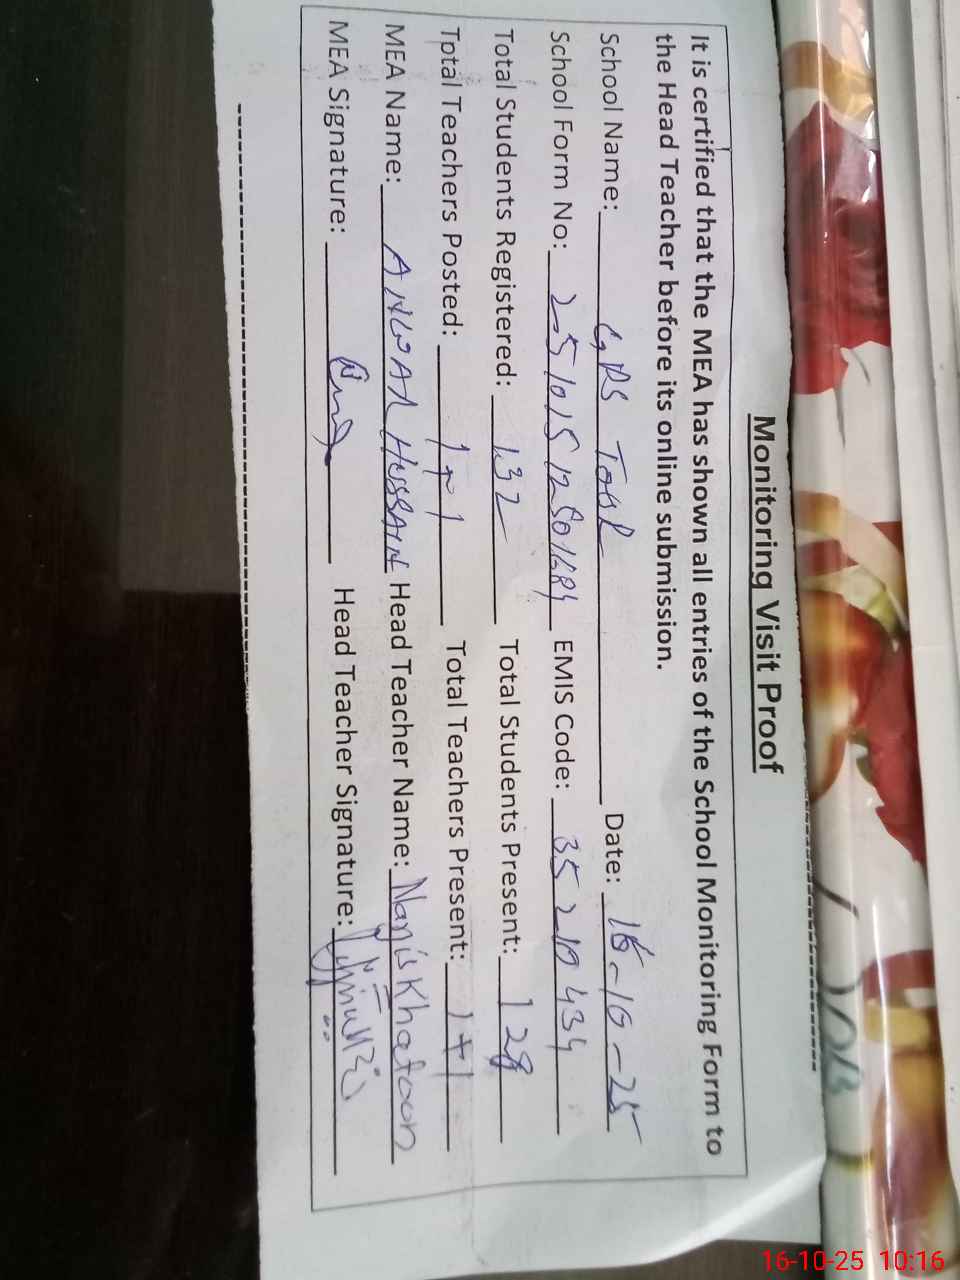 Monitoring Visit Proof
It is certified that the MEA has shown all entries of the School Monitoring Form to
the Head Teacher before its online submission.
School Name: Date: 16-10-25
School Form No: EMIS Code: 35210434
Total Students Registered: 132 Total Students Present: 128
Total Teachers Posted: 1+1 Total Teachers Present: 1+1
MEA Name: ANWAR HUSSAIN Head Teacher Name: Narjis Khatoon
MEA Signature: Head Teacher Signature:
16-10-25 10:16